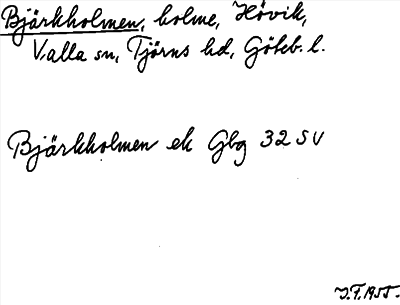 Bjärkholmen, holme, Hövik,
Valla sn, Tjörns hd, Göteb. l.
Bjärkholmen ek Gbg 32 SV
J.F. 1955.